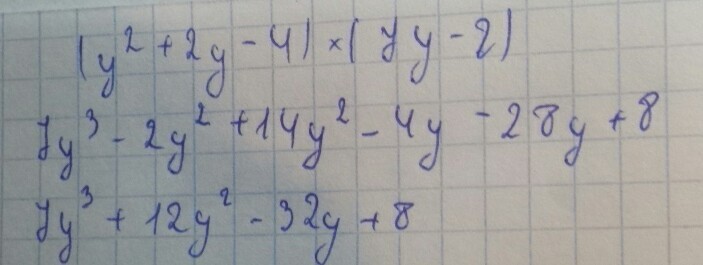 (y² + 2y - 4) × (7y - 2)
7y³ - 2y² + 14y² - 4y - 28y + 8
7y³ + 12y² - 32y + 8